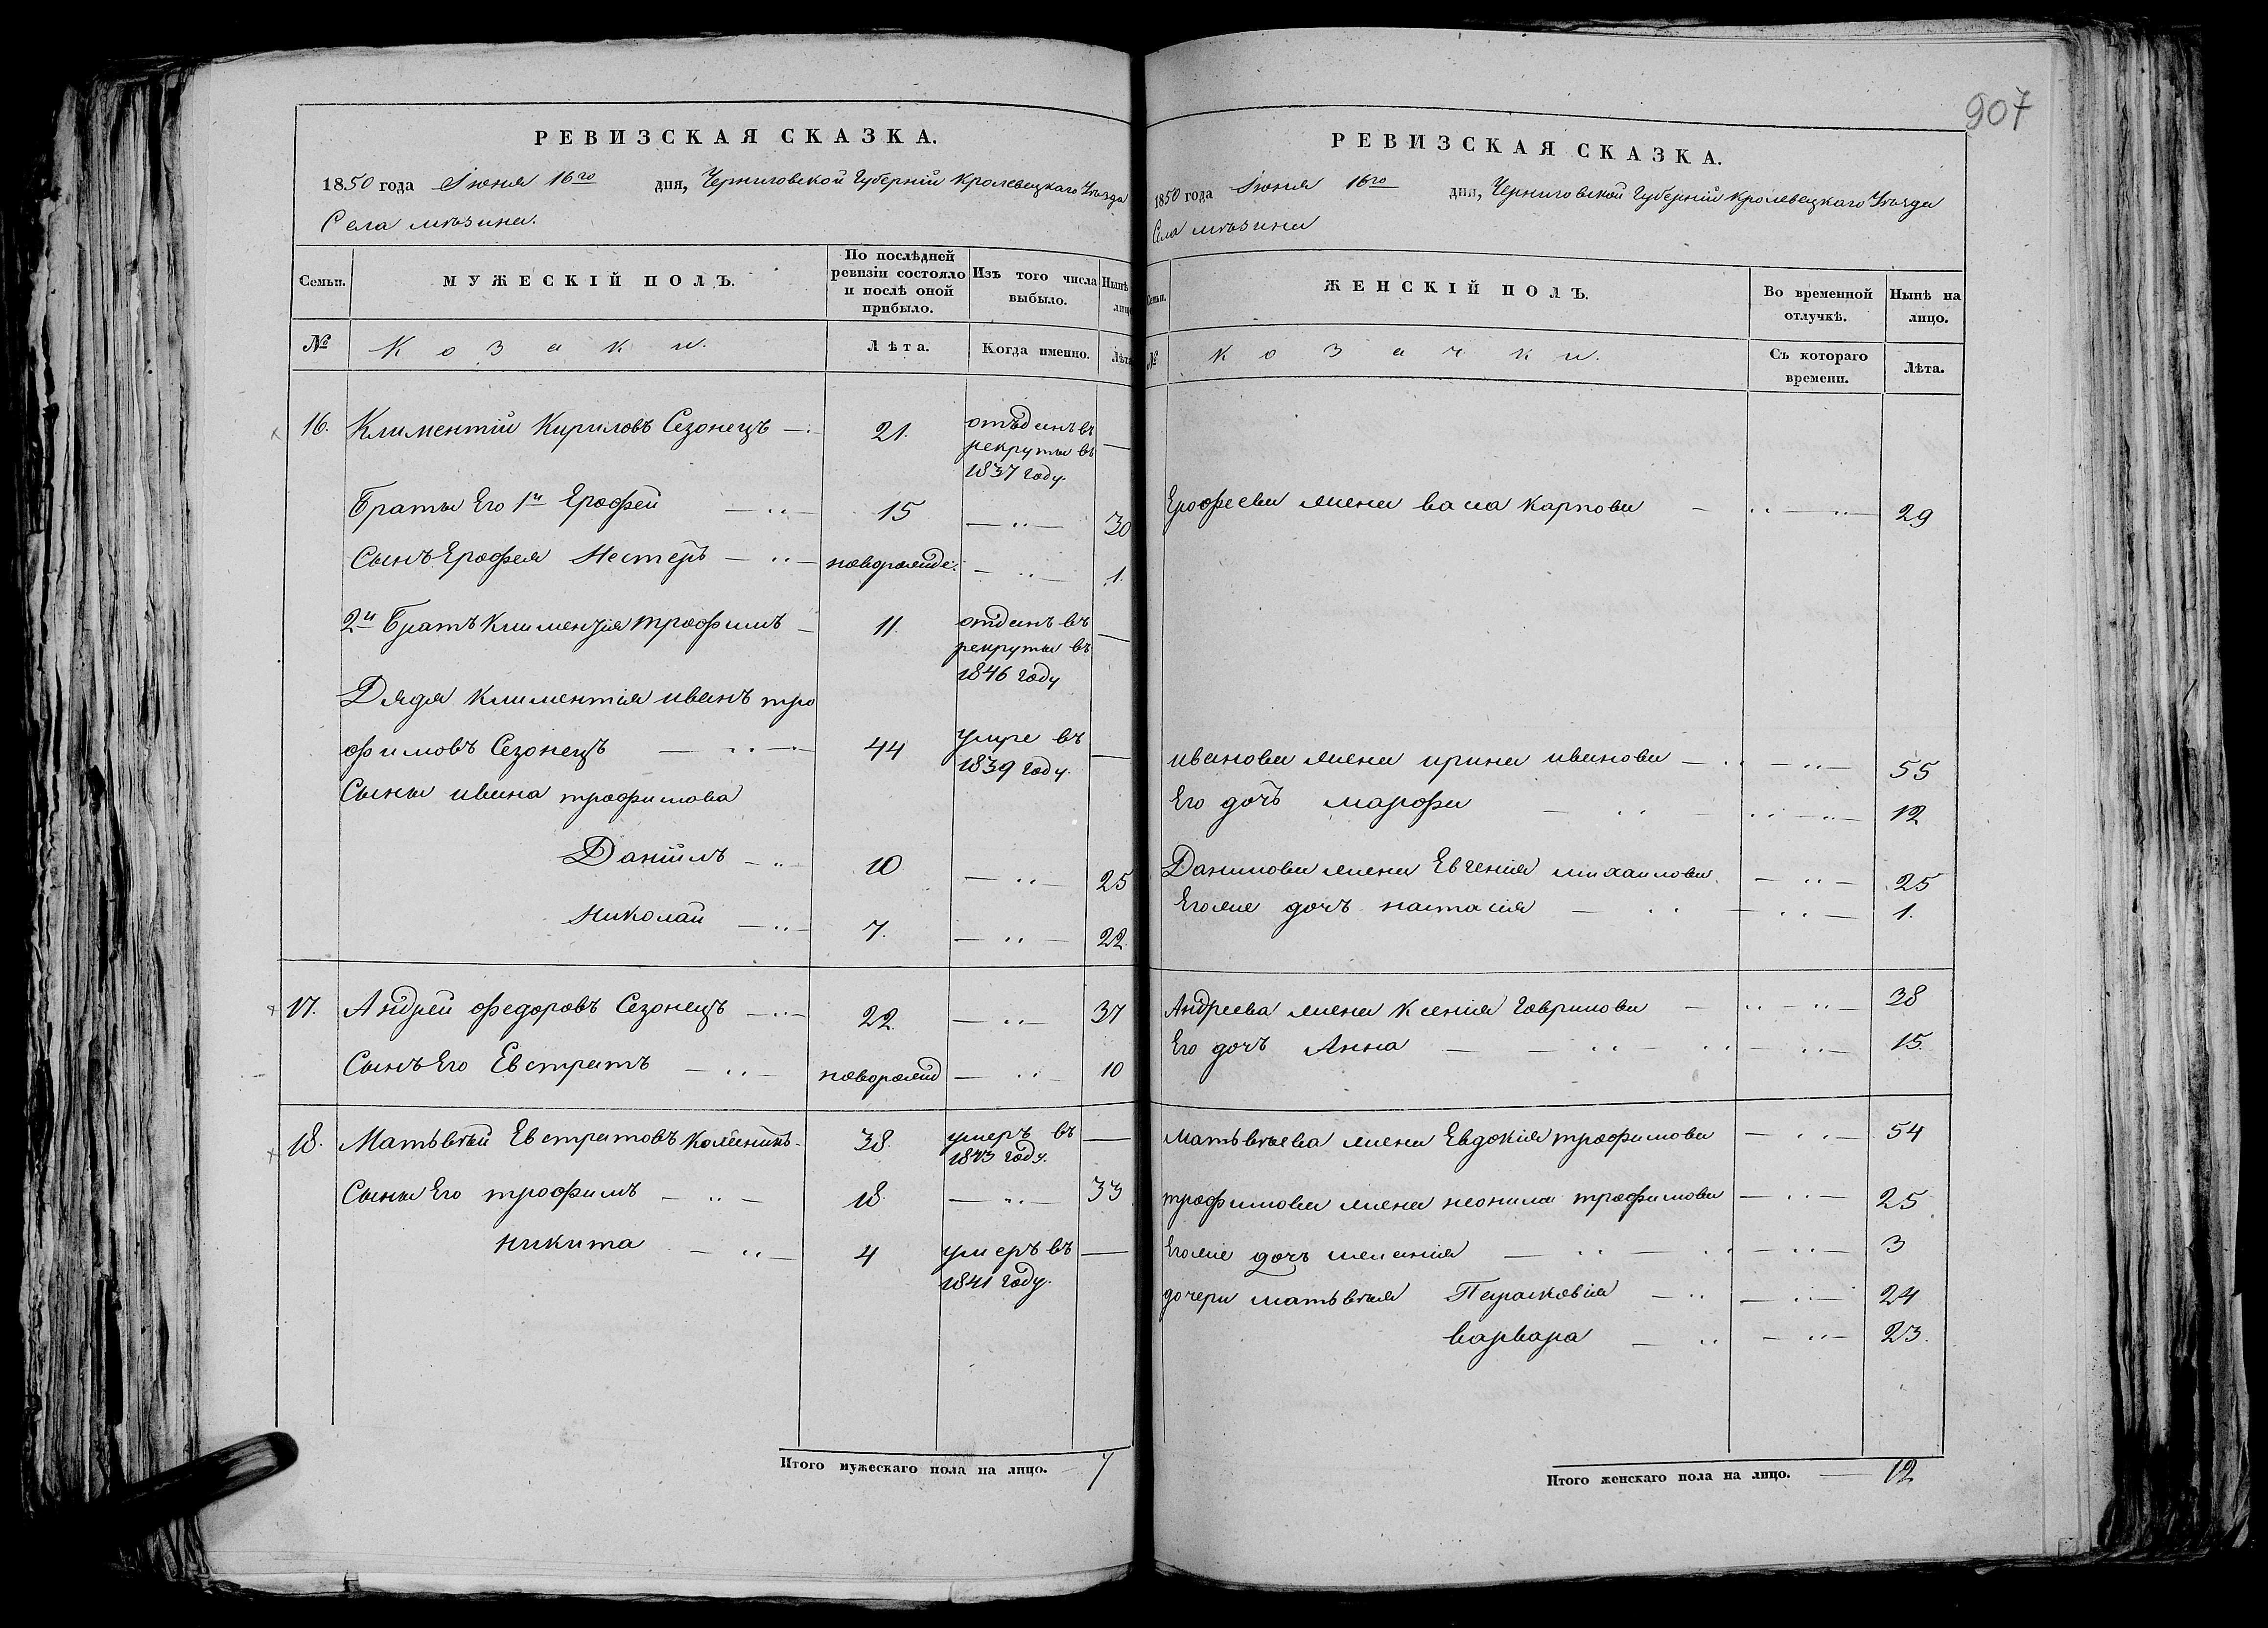 907
РЕВИЗСКАЯ СКАЗКА.
1850 года Июня 16го дня, Черниговской Губерніи Кролевецкаго Уѣзда
Села мѣзина.
Семьи. МУЖЕСКІЙ ПОЛЪ. По послѣдней ревизіи состояло и послѣ оной прибыло. Изъ того числа выбыло. Нынѣ
№ Козаки. Лѣта. Когда именно. Лѣта
16. Климентій Кириловъ Сезонецъ 21. отъданъ въ
рекруты въ
1837 году.
Браты Его 1й Ерофей 15 30
Сынъ Ерофея Нестеръ новорожде. 1.
2й Братъ Климентія трофимъ 11. отданъ въ
рекруты въ
1846 году
Дядя климентія иванъ тро
фимовъ Сезонецъ 44 умре въ
1839 году.
Сыны ивана трофимова
Даніилъ 10 25
Николай 7. 22.
17. Андрей федоровъ Сезонецъ 22. 37
Сынъ Его Евстратъ новорожд 10
18. Матьвѣй Евстратовъ 38. умеръ въ
1843 году.
Сыны Его трофимъ 18. 33
никита 4 умеръ въ
1841 году.
Итого мужескаго пола на лицо. 7
РЕВИЗСКАЯ СКАЗКА.
1850 года Июня 16го дня, Черниговской Губерніи Кролевецкаго Уѣзда
Села мѣзина
Семьи. ЖЕНСКІЙ ПОЛЪ. Во временной отлучкѣ. Нынѣ на лицо.
№ Козачки. Съ котораго времени. Лѣта.
Ерофеева жена васа карпова 29
иванова жена ирина иванова 55
Его дочь марфа 12
Данилова жена Евгенія михаилова. 25
Егоже дочь настасія 1.
Андреева жена Ксенія Гаврилова 38
Его дочь Анна 15.
Матьвѣева жена Евдокія трофимова 54
трофимова жена неонила трофимова 25
Егоже дочь меланія 3
дочери матьвѣя Парасковія 24
варвара 23.
Итого женскаго пола на лицо. 12